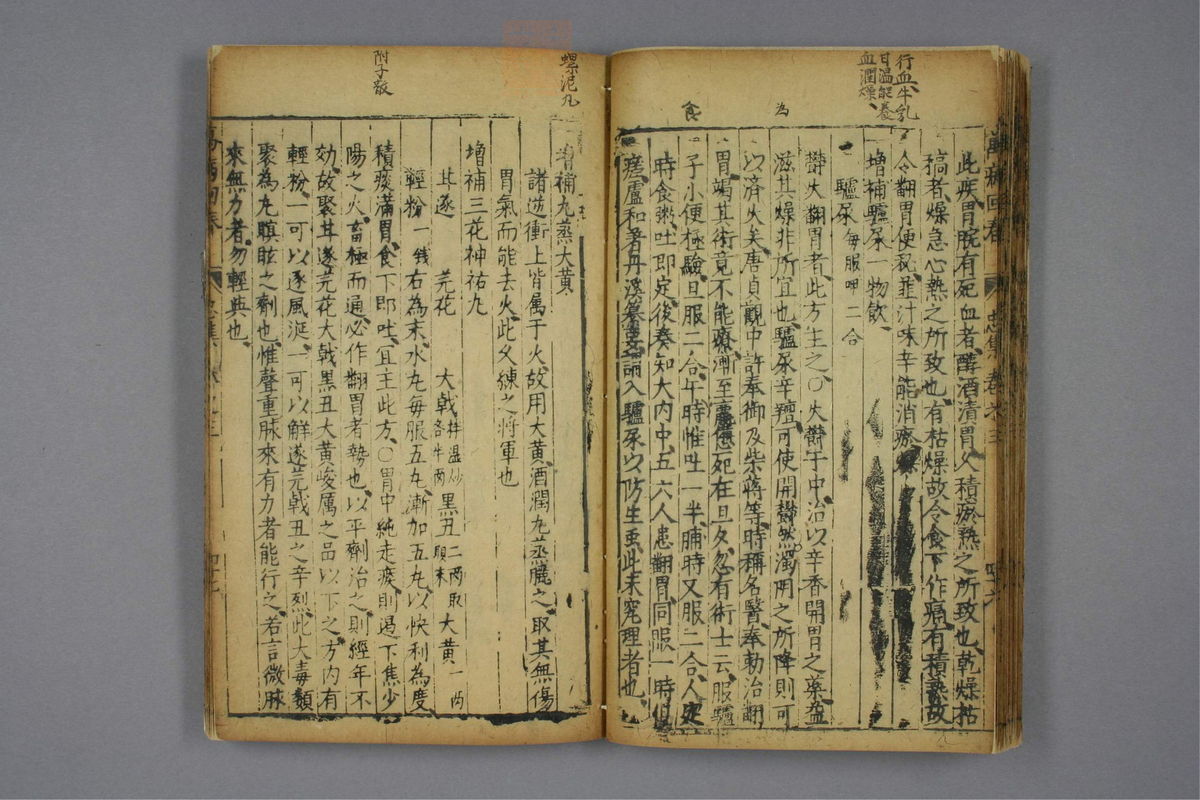 行血牛乳
甘温能養
血潤燥
食
為
此疾胃脘有死血者醉酒漬胃久積瘀熱之所致也乾燥枯
稿者燥急心熱之所致也有枯燥故令食下作痛有積熱故
令翻胃便秘韮汁味辛能消瘀
增補驢尿一物飲
驢尿 每服呷二合
欝火翻胃者此方主之○火欝于中治以辛香開胃之藥益
滋其燥非所宜也驢尿辛羶可使開欝然濁陰之所降則可
以済火矣唐貞觀中許奉御及柴蔣等時稱名醫奉勅治翻
胃竭其術竟不能療漸至 死在旦夕忽有術士云服驢
子小便極驗旦服二合午時惟吐一半脯時又服二合人定
時食粥吐即定後奏知大内中五六人患翻胃同服一時俱
瘥盧和著丹溪纂要 入驢尿以防生虫此未究理者也
萬病回春
忠集
螺泥丸
附子散
增補九蒸大黄
諸逆衝上皆属于火故用大黄酒潤九蒸曬之取其無傷
胃氣而能去火此久練之将軍也
增補三花神祐丸
甘遂 芫花 大戟 黒丑二两取頭末 大黄一两
輕粉一銭右為末水丸每服五丸漸加五丸以快利為度
積痰満胃食下即吐宜主此方○胃中純走痰則過下焦少
陽之火畜極而通必作翻胃者勢也以平劑治之則經年不
効故聚甘遂芫花大戟黒丑大黄峻厲之品以下之方内有
輕粉一可以逐風涎一可以解遂芫戟丑之辛烈此大毒類
聚為丸瞑眩之劑也惟聲重脉来有力者能行之若言微脉
來無力者勿輕與也